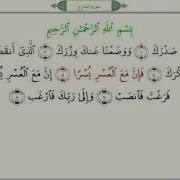 سورة الشرح
بِسْمِ اللَّهِ الرَّحْمَٰنِ الرَّحِيمِ
صَدْرَكَ ۝١ وَوَضَعْنَا عَنكَ وِزْرَكَ ۝٢ الَّذِي أَنقَضَ
كْرَكَ ۝٤ فَإِنَّ مَعَ الْعُسْرِ يُسْرًا ۝٥ إِنَّ مَعَ الْعُسْرِ يُسْ
فَرَغْتَ فَانصَبْ ۝٧ وَإِلَىٰ رَبِّكَ فَارْغَب